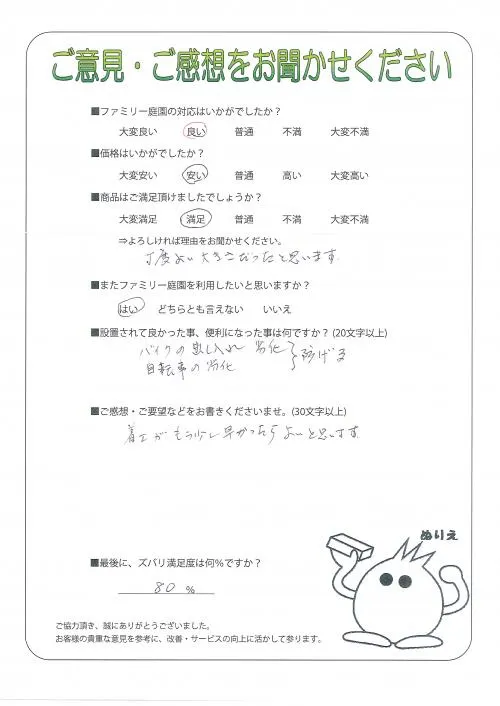 ご意見・ご感想をお聞かせください
■ファミリー庭園の対応はいかがでしたか？
大変良い 良い 普通 不満 大変不満
■価格はいかがでしたか？
大変安い 安い 普通 高い 大変高い
■商品はご満足頂けましたでしょうか？
大変満足 満足 普通 不満 大変不満
⇒よろしければ理由をお聞かせください。
丁度よい大きさだったと思います。
■またファミリー庭園を利用したいと思いますか？
はい どちらとも言えない いいえ
■設置されて良かった事、便利になった事は何ですか？(20文字以上)
バイクの出し入れ 劣化 防げる
自転車の劣化
■ご感想・ご要望などをお書きくださいませ。(30文字以上)
着工がもう少し早かったらよいと思います。
ぬりえ
■最後に、ズバリ満足度は何％ですか？
80 %
ご協力頂き、誠にありがとうございました。
お客様の貴重な意見を参考に、改善・サービスの向上に活かして参ります。